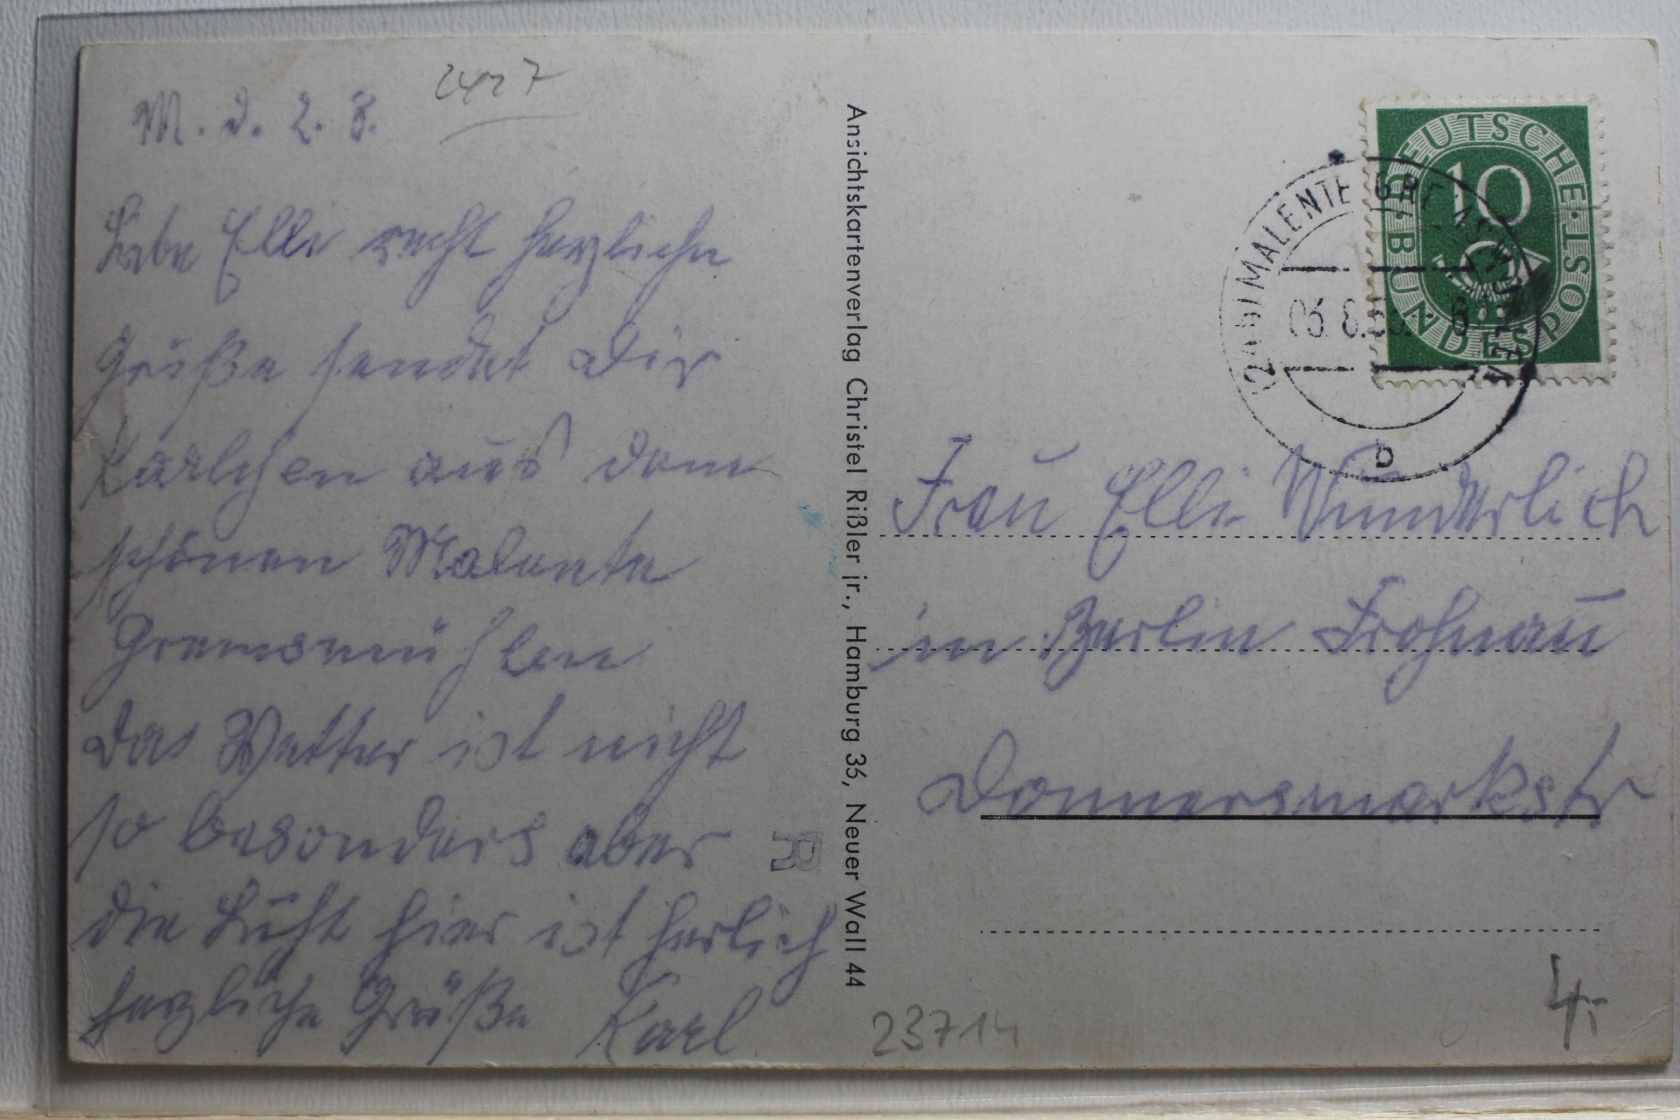 M. d. 2. 8.
Liebe Elli recht herzliche
Grüße sendet Dir
Karlchen aus dem
schönen Malente
Gremsmühlen
Das Wetter ist nicht
so besonders aber
die Luft hier ist herlich
herzliche Grüße Karl
Ansichtskartenverlag Christel Rißler jr., Hamburg 36, Neuer Wall 44
DEUTSCHE BUNDESPOST
10
MALENTE-GREMSMÜHLEN
b
Frau Elli Wunderlich
in Berlin Frohnau
Donnersmarkstr
R
23714
4,-